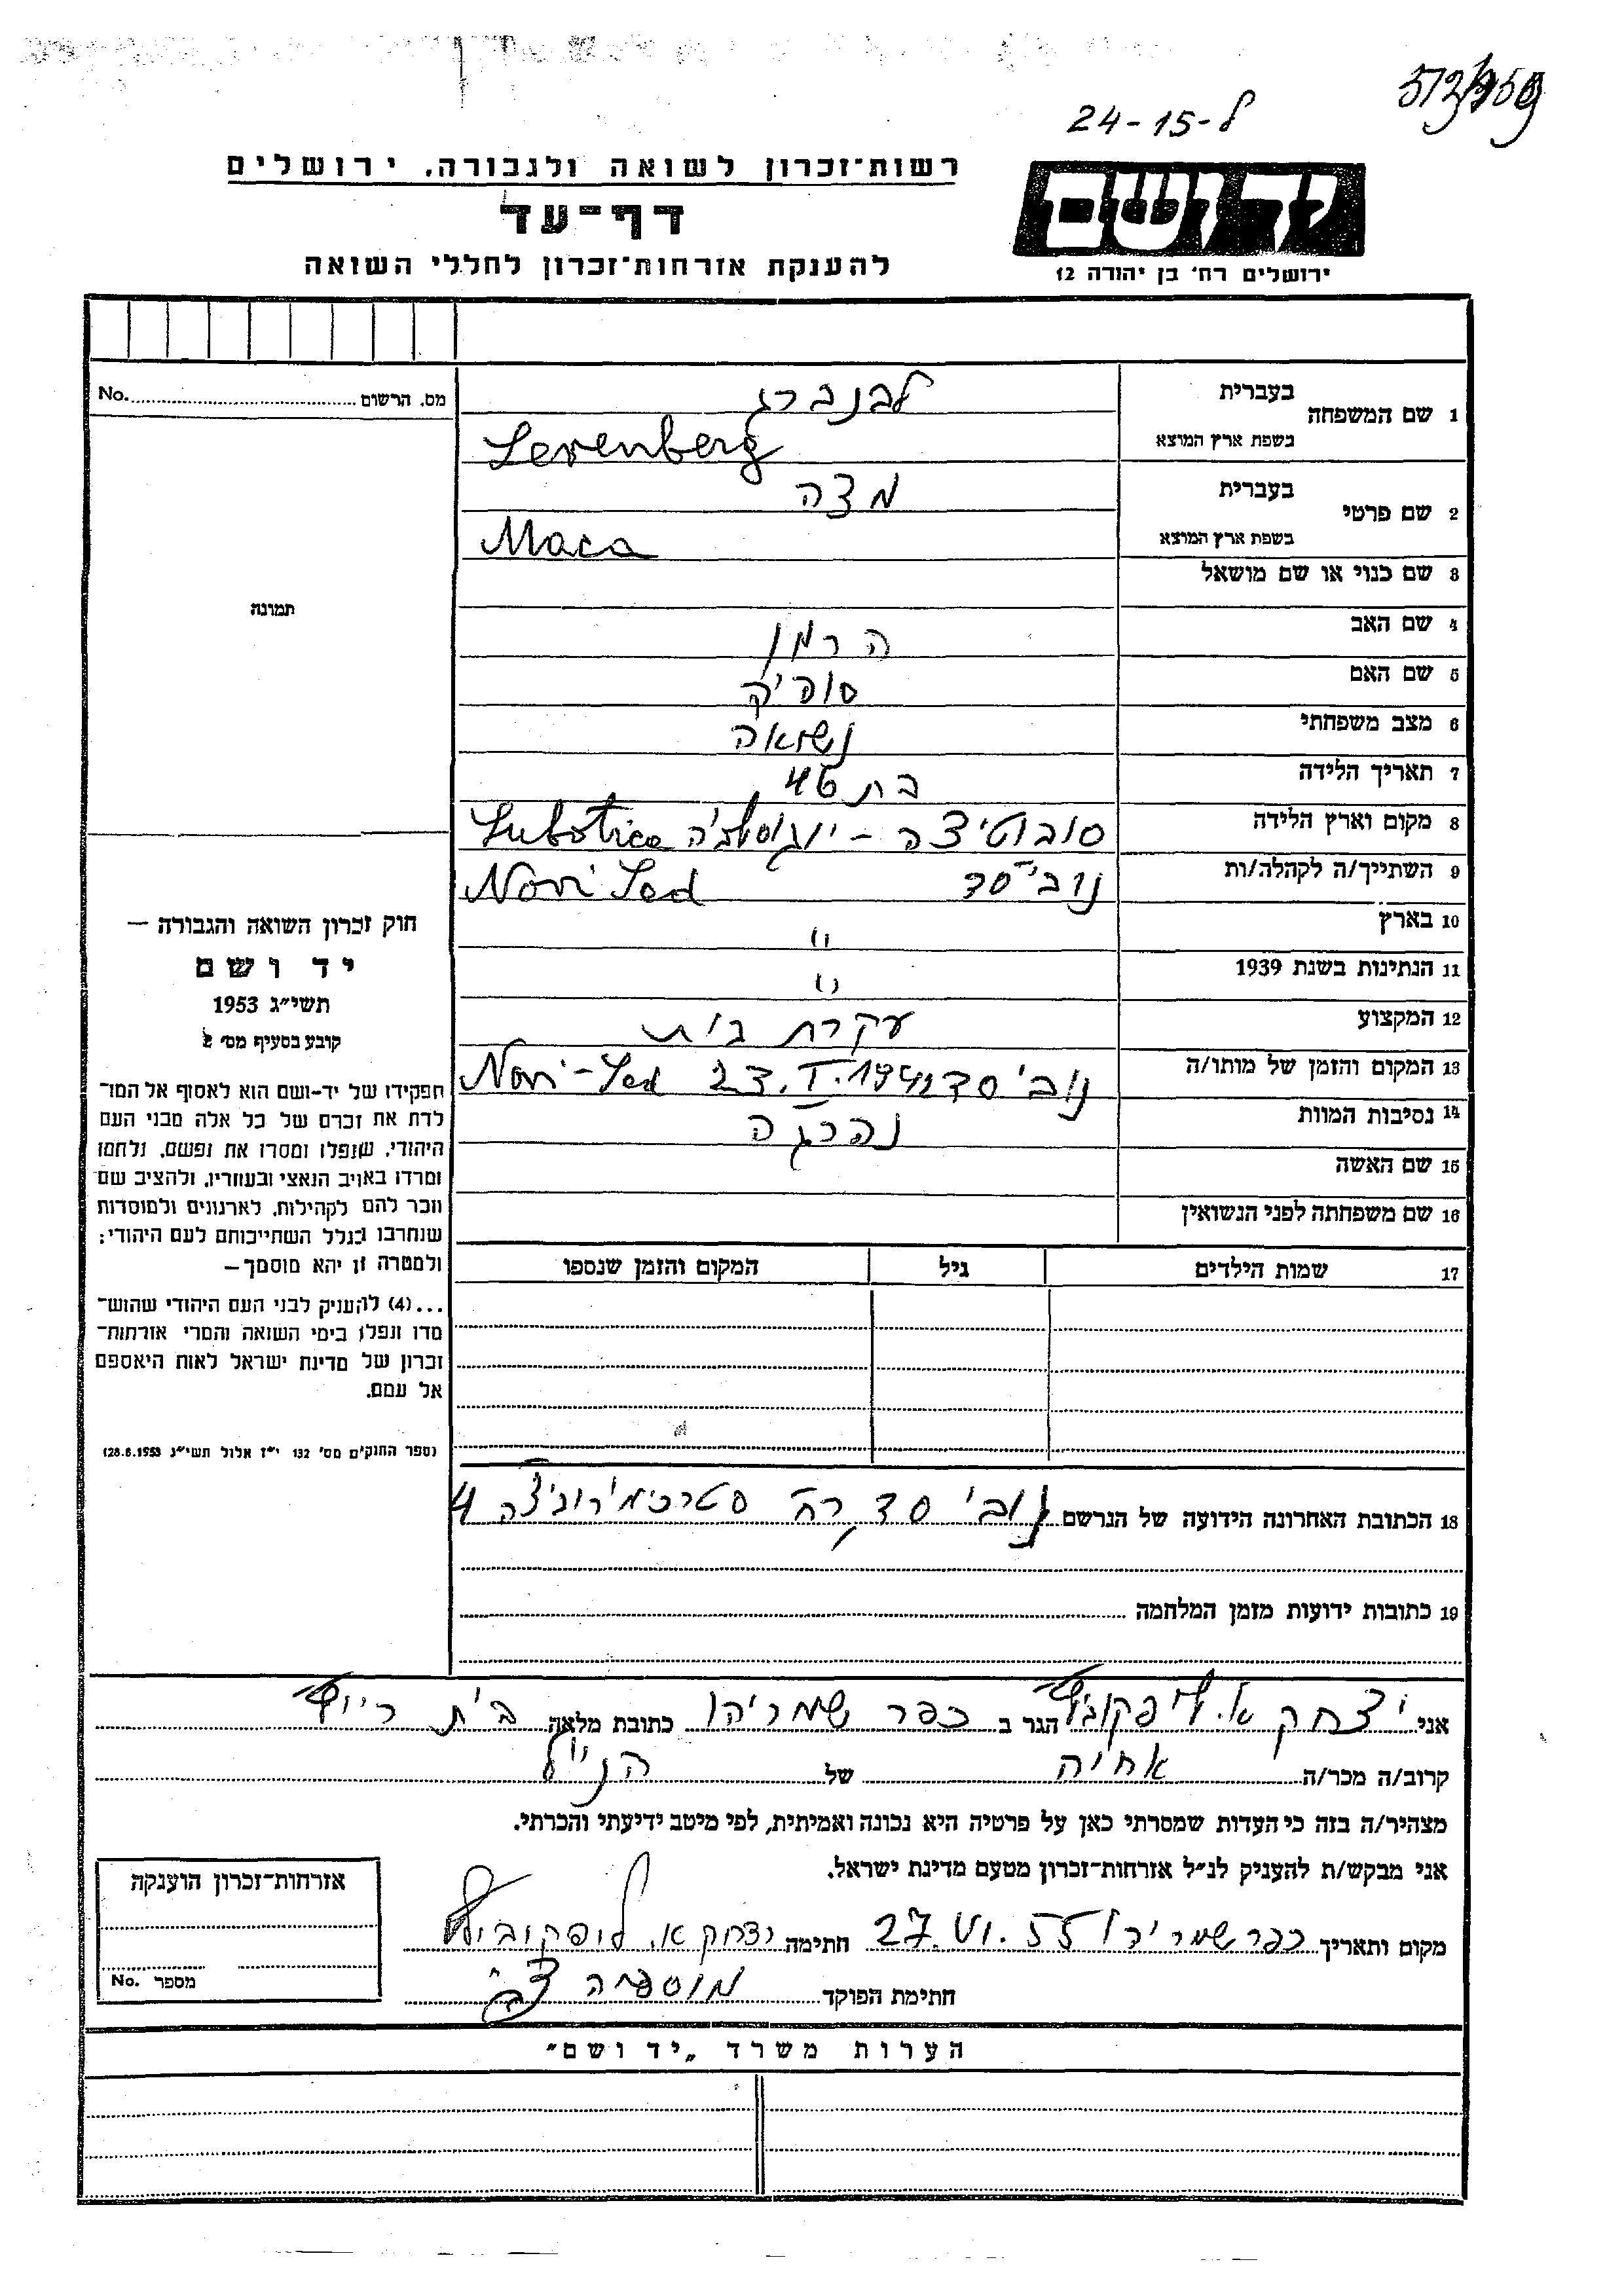 24-15-ל
רשות־זכרון לשואה ולגבורה, ירושלים
דף־עד
להענקת אזרחות־זכרון לחללי השואה
יד ושם
ירושלים רח' בן יהודה 12
מס. הרשום No.
תמונה
1 שם המשפחה בעברית לבנברג
בשפת ארץ המוצא Levenberg
2 שם פרטי בעברית מצה
בשפת ארץ המוצא Maca
3 שם כנוי או שם מושאל
4 שם האב הרמן
5 שם האם
6 מצב משפחתי נשואה
7 תאריך הלידה בת 46
8 מקום וארץ הלידה סובוטיצה - יוגוסלביה Subotica
9 השתייך/ה לקהלה/ות נובי סד Novi Sad
10 בארץ "
11 הנתינות בשנת 1939 "
12 המקצוע עקרת בית
13 המקום והזמן של מותו/ה נובי סד 23.I.1942 Novi-Sad
14 נסיבות המוות נהרגה
15 שם האשה
16 שם משפחתה לפני הנשואין
17 שמות הילדים גיל המקום והזמן שנספו
חוק זכרון השואה והגבורה —
יד ושם
תשי״ג 1953
קובע בסעיף מס' 2
תפקידו של יד-ושם הוא לאסוף אל המו־
לדת את זכרם של כל אלה מבני העם
היהודי, שנפלו ומסרו את נפשם, נלחמו
ומרדו באויב הנאצי ובעוזריו, ולהציב שם
וזכר להם לקהילות, לארגונים ולמוסדות
שנחרבו בגלל השתייכותם לעם היהודי;
ולמטרה זו יהא מוסמך—
...(4) להעניק לבני העם היהודי שהוש־
מדו ונפלו בימי השואה והמרי אזרחות־
זכרון של מדינת ישראל לאות היאספם
אל עמם.
(ספר החוקים מס' 132 י״ז אלול תשי״ג 28.8.1953)
18 הכתובת האחרונה הידועה של הנרשם נובי סד, רח' 4
19 כתובות ידועות מזמן המלחמה
אני יצחק א. ליפקוביץ הגר ב כפר שמריהו כתובת מלאה בית
קרוב/ה מכר/ה אחיה של הנ״ל
מצהיר/ה בזה כי העדות שמסרתי כאן על פרטיה היא נכונה ואמיתית, לפי מיטב ידיעתי והכרתי.
אני מבקש/ת להעניק לנ״ל אזרחות־זכרון מטעם מדינת ישראל.
מקום ותאריך כפר שמריהו 27.VI.55 חתימה יצחק א. ליפקוביץ
חתימת הפוקד
אזרחות־זכרון הוענקה
מספר No.
הערות משרד „יד ושם״